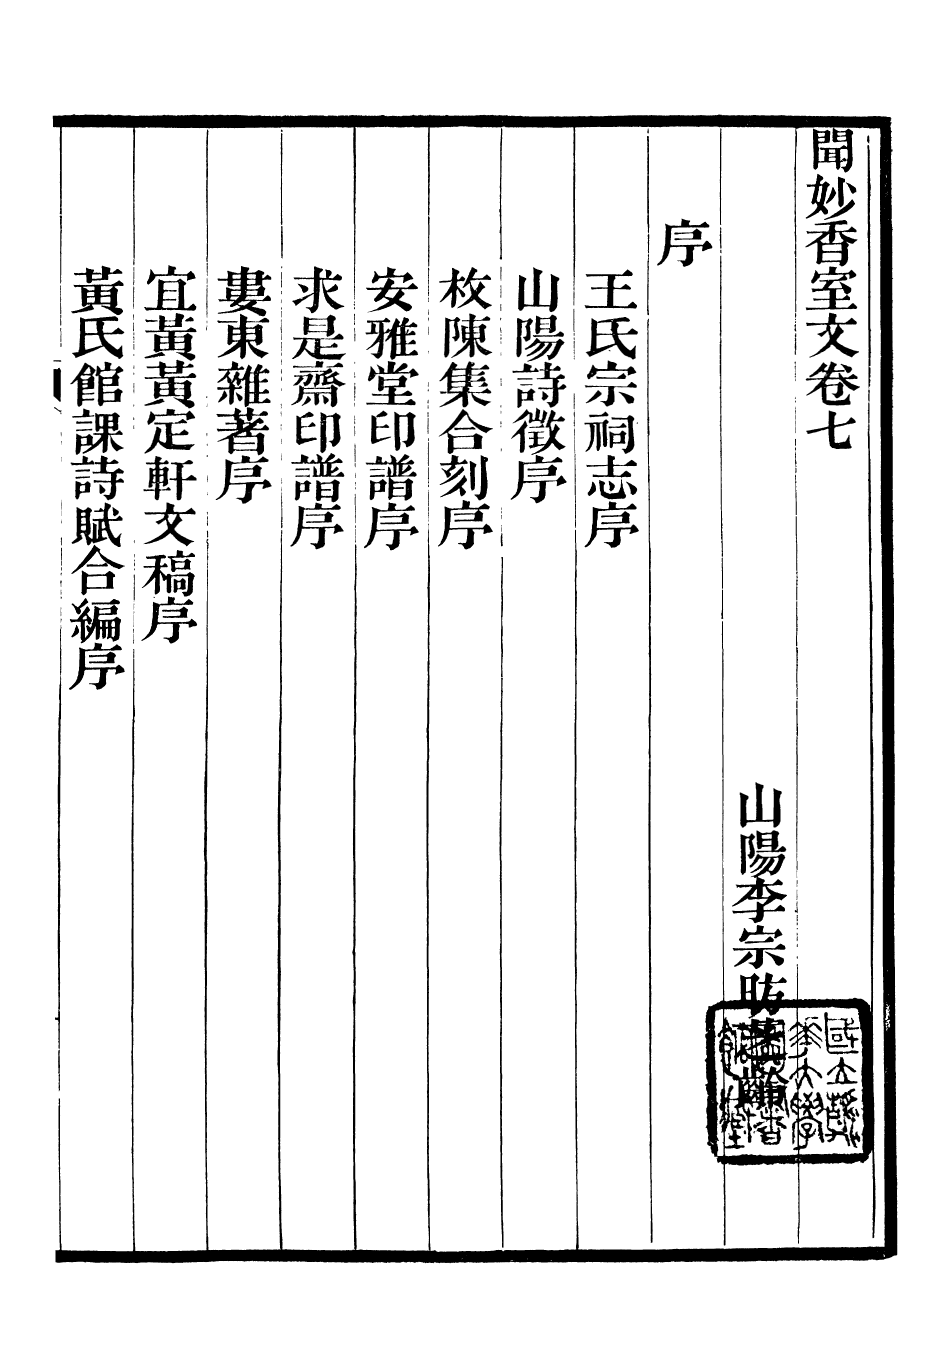 聞妙香室文卷七
山陽李宗昉芝齡
序
王氏宗祠志序
山陽詩徵序
枚陳集合刻序
安雅堂印譜序
求是齋印譜序
婁東雜著序
宜黃黃定軒文稿序
黃氏館課詩賦合編序
國立清華大學圖書館藏